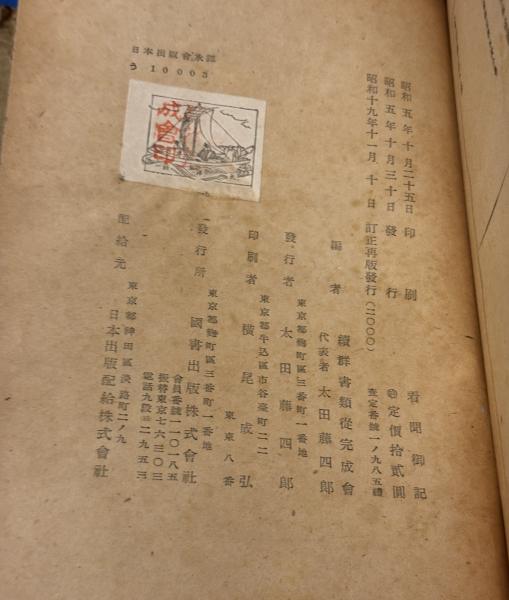 日本出版會承認
う 10003
昭和五年十月二十五日 印刷
昭和五年十月三十日 發行
昭和十九年十一月 十 日 訂正再版發行(二〇〇〇)
看聞御記
定價拾貳圓
編者
續群書類從完成會
代表者 太田藤四郎
發行者
東京都麴町區三番町一番地
太田藤四郎
印刷者
東京都牛込區市谷臺町二二
横尾成弘
東東八番
發行所
東京都麴町區三番町一番地
國書出版株式會社
會員番號一一〇一八五
振替東京七六三〇三
電話九段
配給元
東京都神田區淡路町二ノ九
日本出版配給株式會社